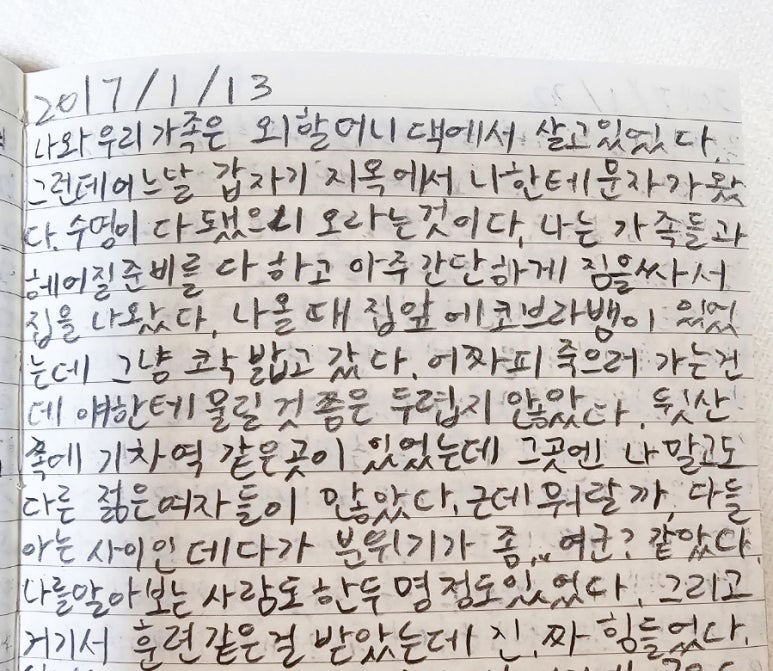 2017/1/13
나와 우리 가족은 외할머니 댁에서 살고있었다.
그런데 어느날 갑자기 지옥에서 나한테 문자가 왔
다. 수명이 다 됐으니 오라는 것이다. 나는 가족들과
헤어질 준비를 다 하고 아주 간단하게 짐을 싸서
집을 나왔다. 나올 때 집앞에 코브라뱀이 있었
는데 그냥 콱 밟고 갔다. 어짜피 죽으러 가는건
데 얘한테 물릴 것 쯤은 두렵지 않았다. 뒷산
쪽에 기차역 같은 곳이 있었는데 그곳엔 나 말고도
다른 젊은 여자들이 많았다. 근데 뭐랄까, 다들
아는 사이인데다가 분위기가 좀... 여군? 같았다.
나를 알아보는 사람도 한두 명 정도 있었다. 그리고
거기서 훈련같은걸 받았는데 진.짜 힘들었다.